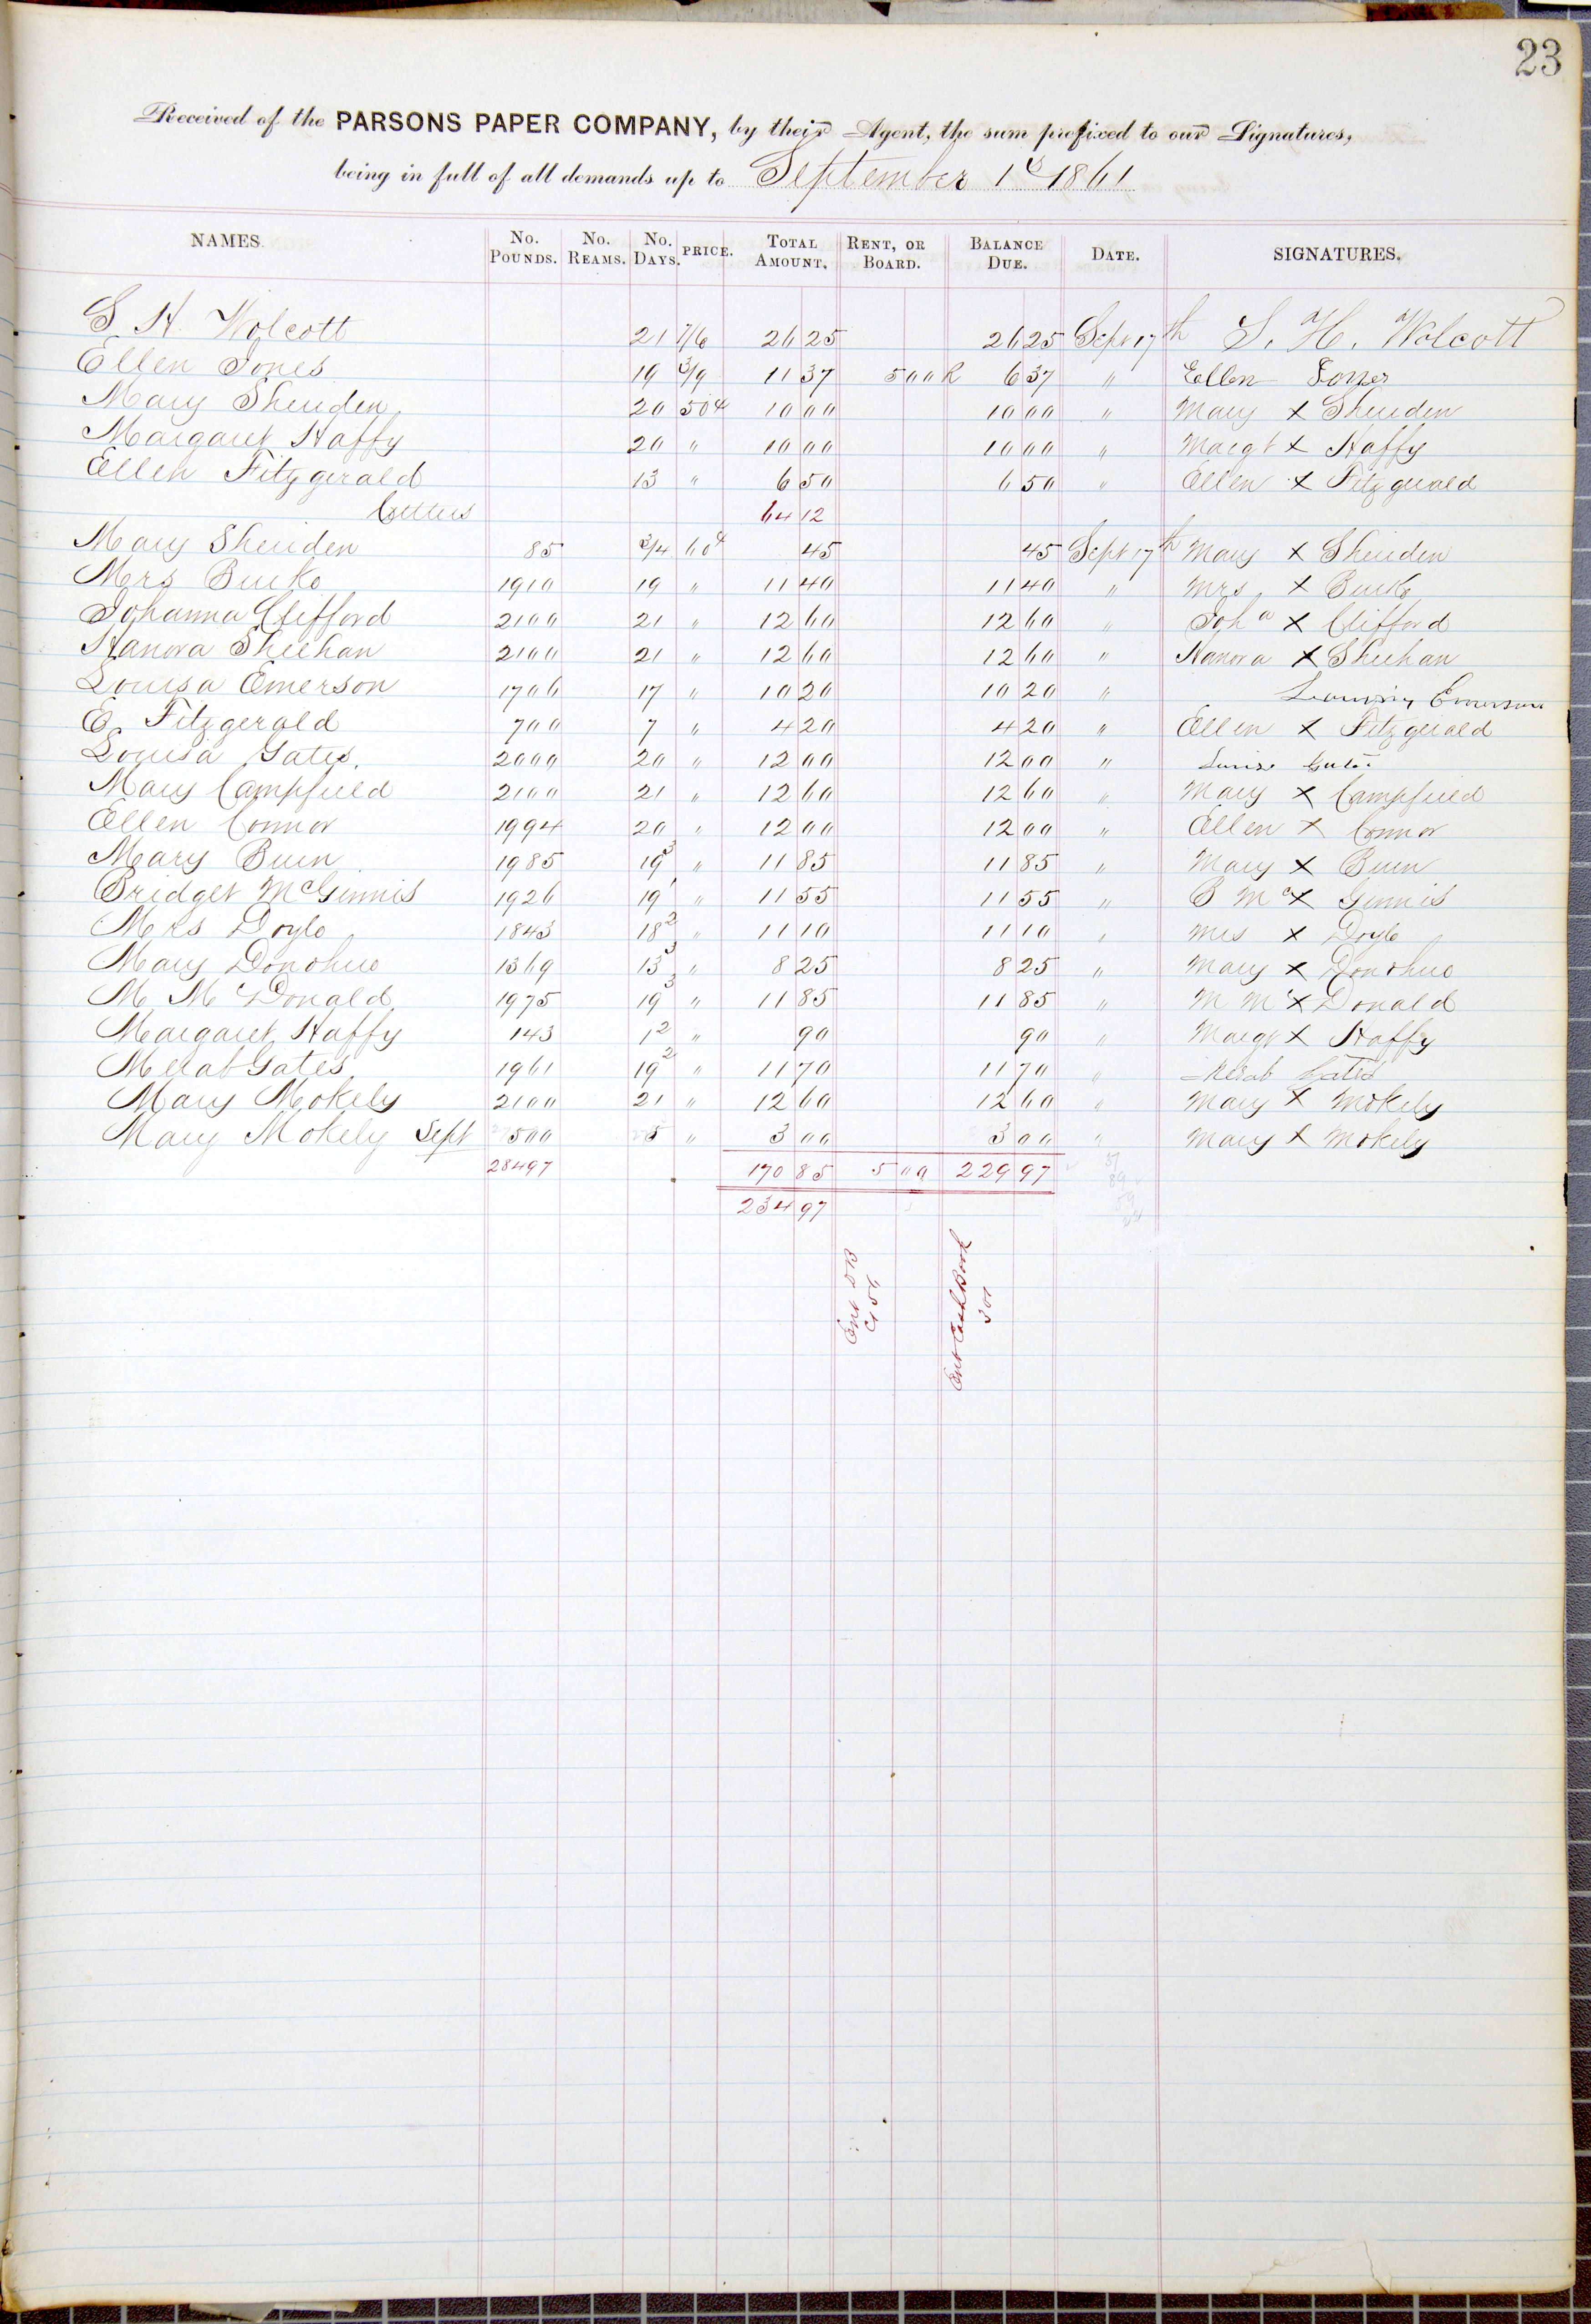 23
Received of the PARSONS PAPER COMPANY, by their Agent, the sum prefixed to our Signatures,
being in full of all demands up to September 1st 1861
NAMES. No. POUNDS. No. REAMS. No. DAYS. PRICE. TOTAL AMOUNT. RENT, OR BOARD. BALANCE DUE. DATE. SIGNATURES.
S H Wolcott 21 7/6 26 25 26 25 Sept 17th S. H. Wolcott
Ellen Jones 19 3/9 11 37 5 00 R 6 37 " Ellen Jones
Mary Sheriden 20 50c 10 00 10 00 " Mary X Sheriden
Margaret Haffy 20 " 10 00 10 00 " Margt X Haffy
Ellen Fitzgerald 13 " 6 50 6 50 " Ellen X Fitzgerald
Cutters 64 12
Mary Sheriden 85 3/4 60c 45 45 Sept 17th Mary X Sheriden
Mrs Burke 1910 19 " 11 40 11 40 " Mrs X Burke
Johanna Clifford 2100 21 " 12 60 12 60 " Joha X Clifford
Hanora Sheehan 2100 21 " 12 60 12 60 " Hanora X Sheehan
Louisa Emerson 1706 17 " 10 20 10 20 " Emerson
E Fitzgerald 700 7 " 4 20 4 20 " Ellen X Fitzgerald
Louisa Gates. 2000 20 " 12 00 12 00 "
Mary Campfield 2100 21 " 12 60 12 60 " Mary X Campfield
Ellen Connor 1994 20 " 12 00 12 00 " Ellen X Connor
Mary Buen 1985 19 3 " 11 85 11 85 " Mary X Buen
Bridget McGinnis 1926 19 1 " 11 55 11 55 " B Mc X Ginnis
Mrs Doyle 1843 18 2 " 11 10 11 10 " Mrs X Doyle
Mary Donohue 1369 13 3 " 8 25 8 25 " Mary X Donohue
M McDonald 1975 19 3 " 11 85 11 85 " M Mc X Donald
Margaret Haffy 143 1 2 " 90 90 " Margt X Haffy
Merab Gates 1961 19 2 " 11 70 11 70 " Merab Gates
Mary Mokely 2100 21 " 12 60 12 60 " Mary X Mokely
Mary Mokely Sept 500 5 " 3 00 3 00 " Mary X Mokely
28497 170 85 5 00 229 97
234 97
Ent DB
Ent Cash Book